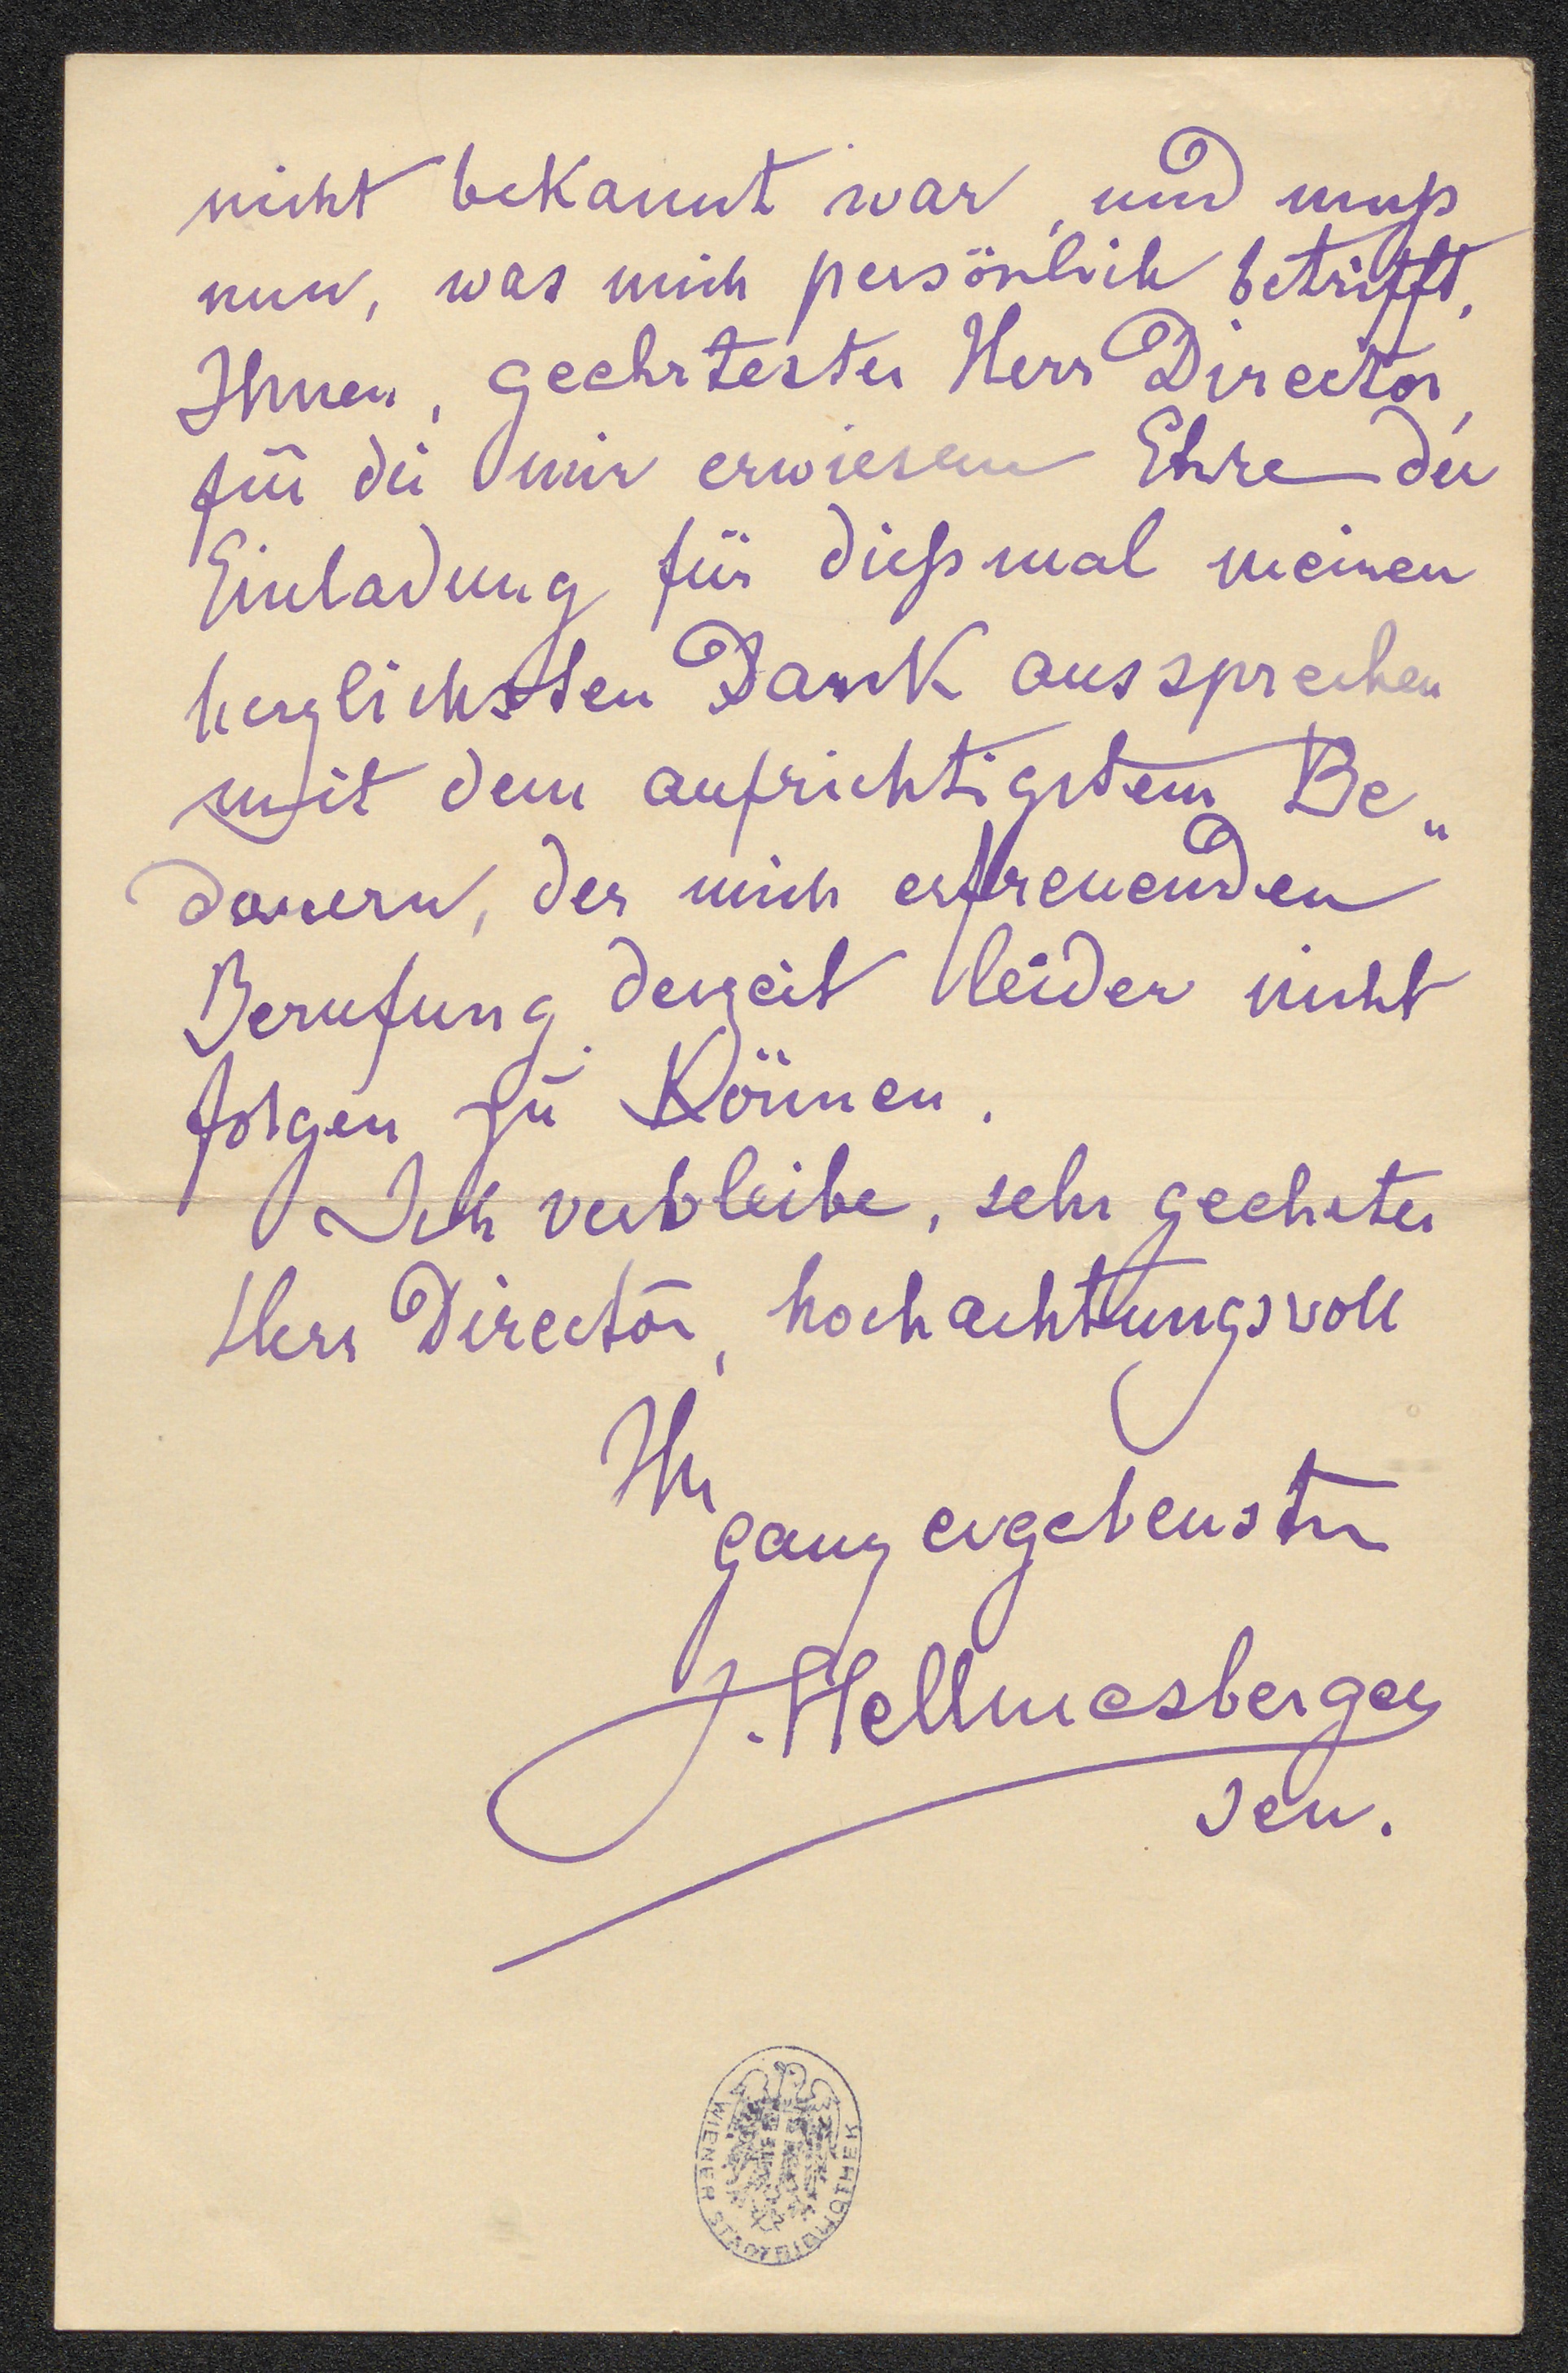 nicht bekannt war, und muß
nun, was mich persönlich betrifft,
Ihnen, geehrtester Herr Director,
für die mir erwiesene Ehre der
Einladung für dießmal meinen
herzlichsten Dank aussprechen
mit dem aufrichtigstem Be„
dauern, der mich erfreuenden
Berufung derzeit leider nicht
folgen zu Können.
Ich verbleibe, sehr geehrter
Herr Director, hochachtungsvoll
Ihr
ganz ergebenster
J. Hellmesberger
sen.
WIENER STADTBIBLIOTHEK